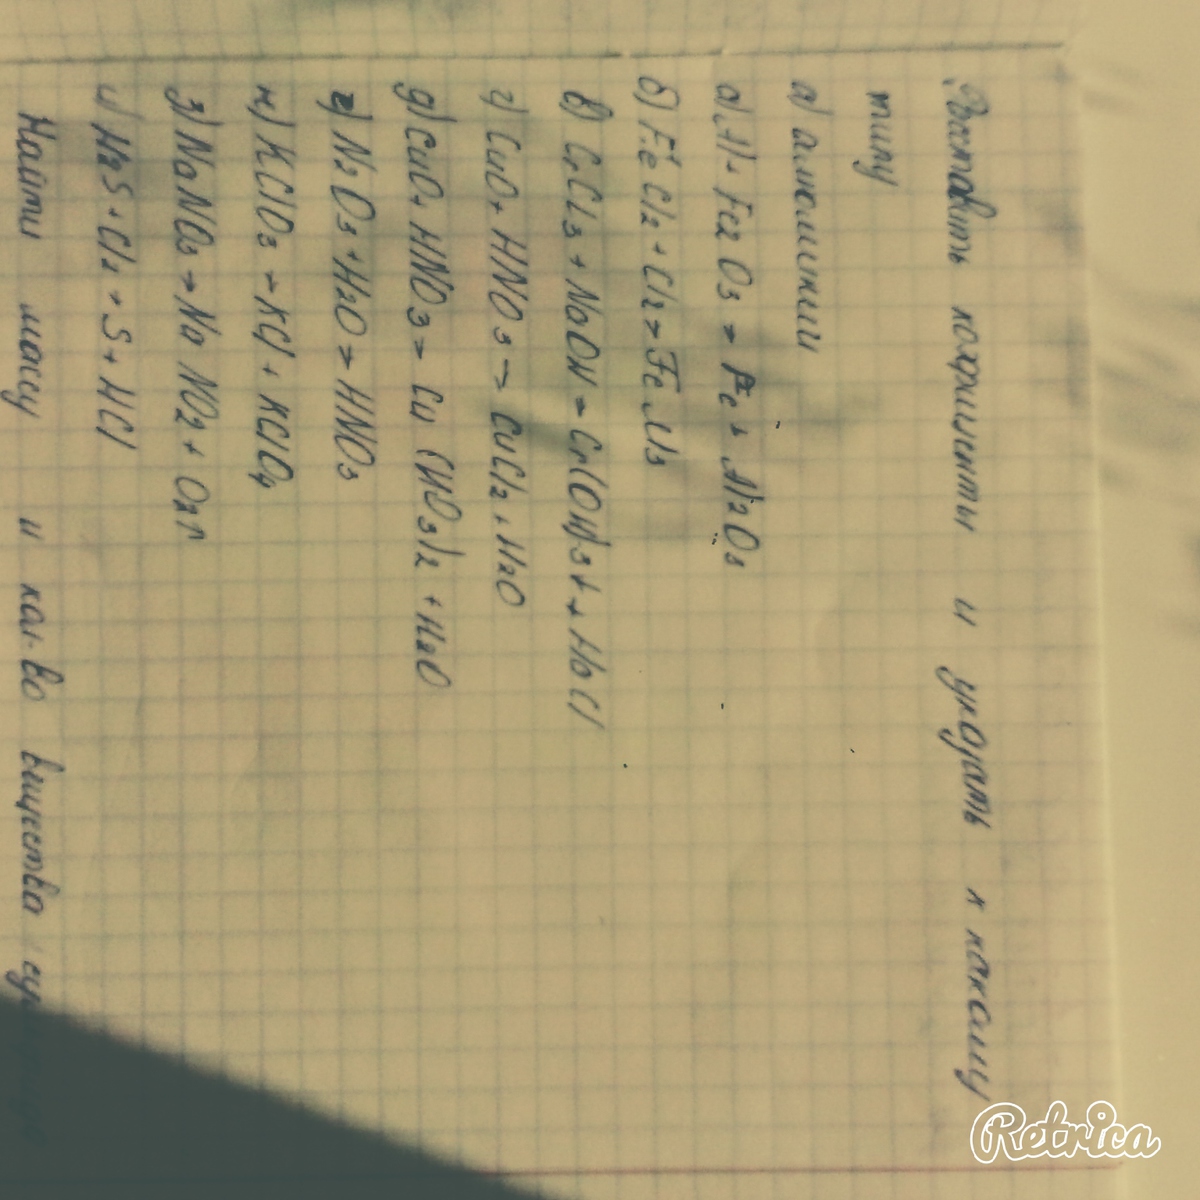 Расставить коэфициенты и указать к какому
типу
а) алюминий
а) Al + Fe2O3 → Fe + Al2O3
б) FeCl2 + Cl2 → FeCl3
в) CrCl3 + NaOH = Cr(OH)3↓ + NaCl
г) CuO + HNO3 → CuCl2 + H2O
д) CuO + HNO3 → Cu(NO3)2 + H2O
е) N2O3 + H2O → HNO3
ж) KClO3 → KCl + KClO4
з) NaNO3 → NaNO2 + O2↑
и) H2S + Cl2 → S + HCl
Найти массу и кол-во вещества
Retrica